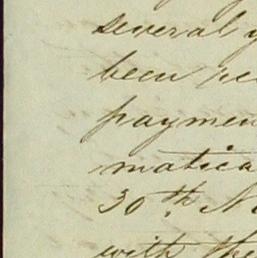 several y
been re
paymen
matica
30th. N
with the